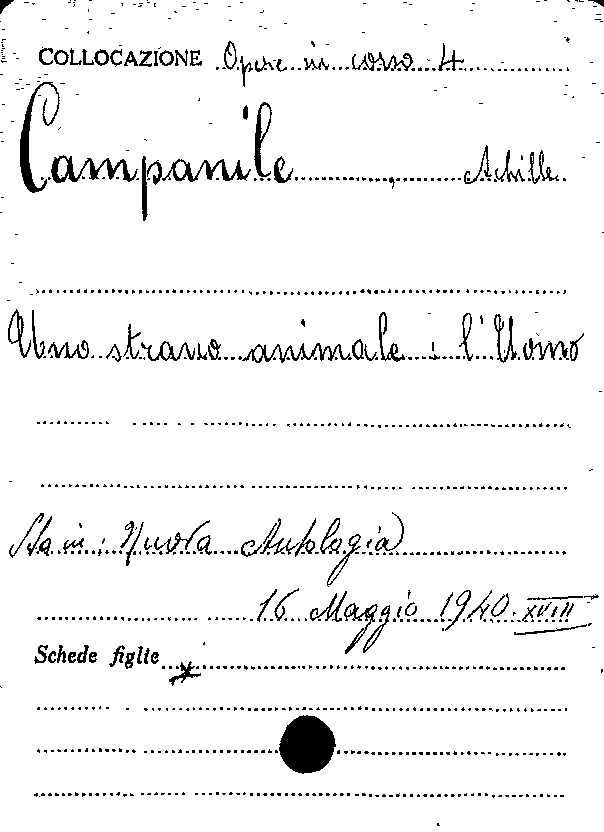 COLLOCAZIONE Opere in corso 4
Campanile, Achille
Uno strano animale : l'Uomo
Sta in : Nuova Antologia
16 Maggio 1940. XVIII
Schede figlie *